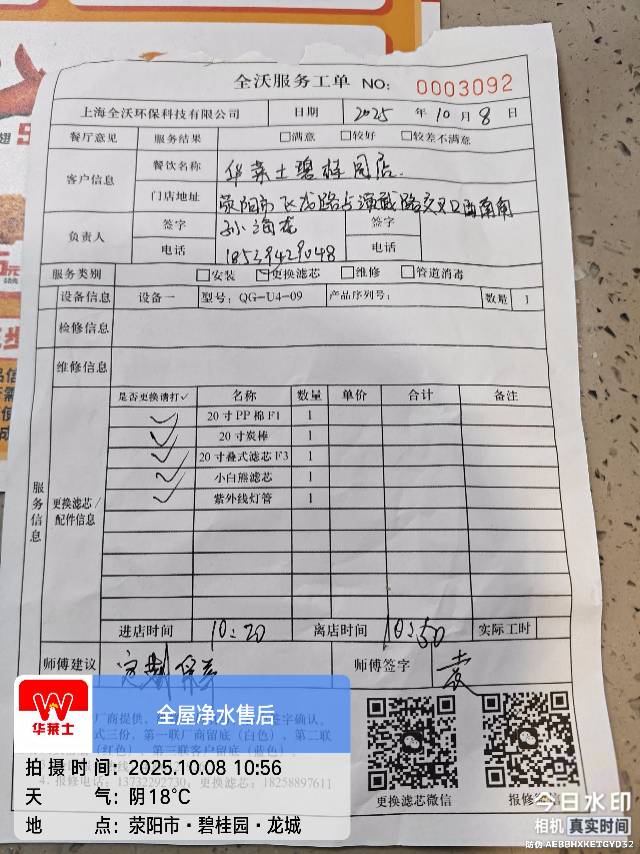 全沃服务工单 NO: 0003092
上海全沃环保科技有限公司 日期 2025 年 10 月 8 日
餐厅意见 服务结果 □满意 □较好 □较差不满意
客户信息 餐饮名称 华莱士碧桂园店
门店地址 荥阳市飞龙路与演武路交叉口西南角
负责人 签字 孙海龙 签字
电话 18539429048 电话
服务类别 □安装 ☑更换滤芯 □维修 □管道消毒
设备信息 设备一 型号: QG-U4-09 产品序列号: 数量 1
检修信息
维修信息
服务信息
更换滤芯/配件信息
是否更换请打✓ 名称 数量 单价 合计 备注
✓ 20寸PP棉F1 1
✓ 20寸炭棒 1
✓ 20寸叠式滤芯F3 1
✓ 小白熊滤芯 1
✓ 紫外线灯管 1
进店时间 10:20 离店时间 10:50 实际工时
师傅建议 定期保养 师傅签字 袁
厂商提供，
签字确认。
式三份，第一联厂商留底（白色），第二联
（红色），第三联客户留底（蓝色）。
4. 报修电话: 13732292730; 更换滤芯: 18258897611
更换滤芯微信 报修
华莱士
全屋净水售后
拍摄时间: 2025.10.08 10:56
天气: 阴18°C
地点: 荥阳市·碧桂园·龙城
今日水印
相机 真实时间
防伪 AEBBHXKETGYD32